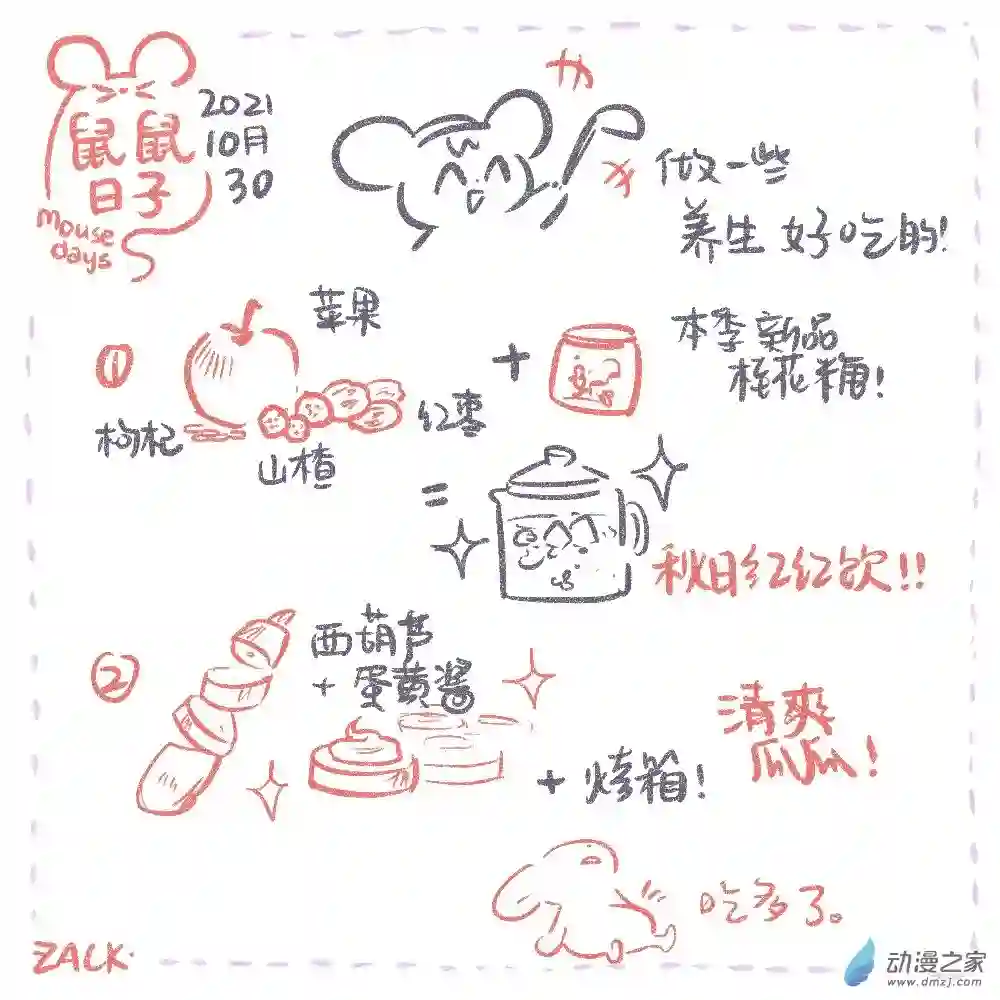 鼠鼠
日子
Mouse
days
2021
10月
30
做一些
养生好吃的!
①
苹果
枸杞
山楂
红枣
+
本季新品
桂花糖!
=
秋日红红饮!!
②
西葫芦
+蛋黄酱
+烤箱!
清爽
瓜瓜!
吃多了。
ZACK.
动漫之家
www.dmzj.com